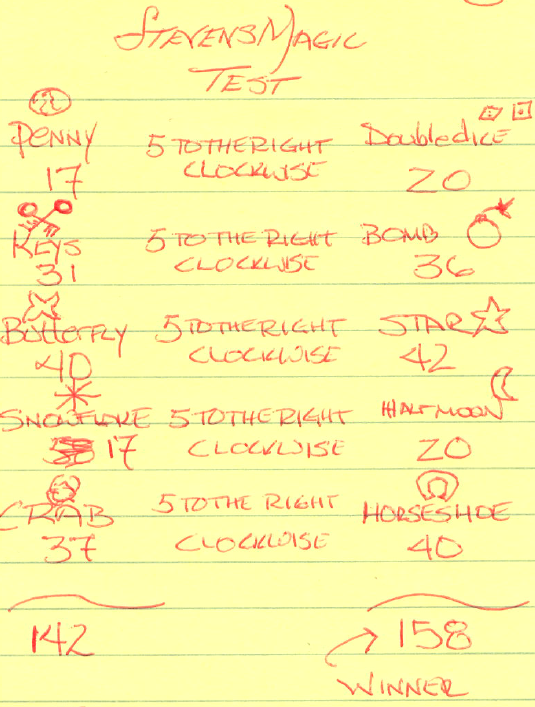 STEVENS MAGIC
TEST
PENNY 5 TO THE RIGHT Double dice
17 CLOCKWISE 20
KEYS 5 TO THE RIGHT BOMB
31 CLOCKWISE 36
Butterfly 5 TO THE RIGHT STAR
40 CLOCKWISE 42
SNOWFLAKE 5 TO THE RIGHT HALF MOON
17 CLOCKWISE 20
CRAB 5 TO THE RIGHT HORSESHOE
37 CLOCKWISE 40
142 158
WINNER